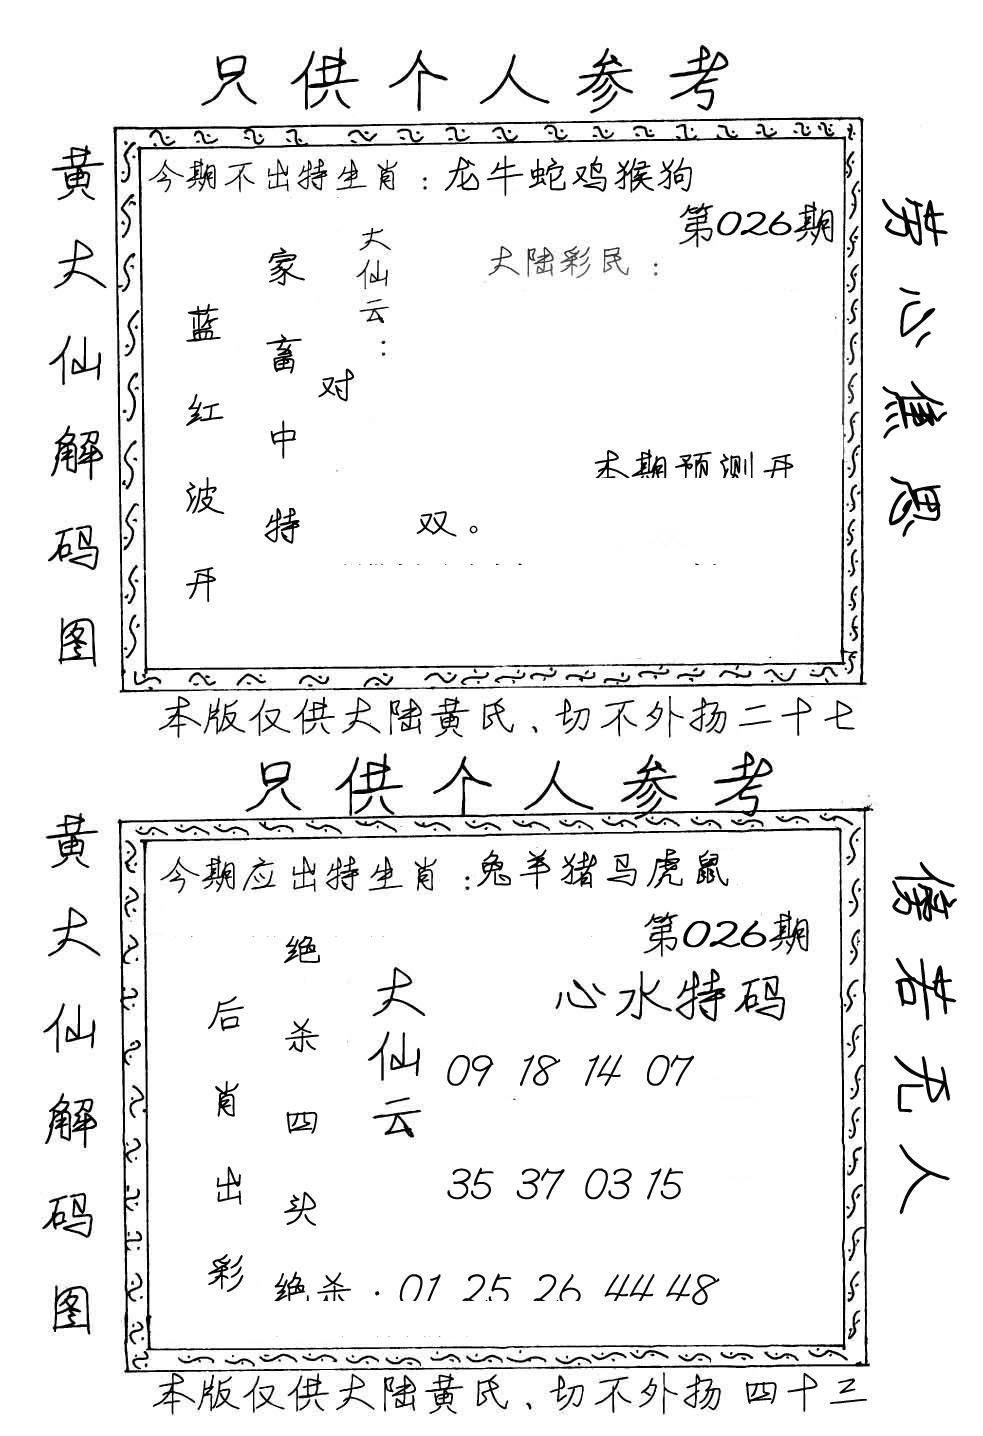 只供个人参考
黄大仙解码图
今期不出特生肖：龙牛蛇鸡猴狗
第026期
大陆彩民：
大仙云：
家畜中特
蓝红波开
对
双。
本期预测开
劳心焦思
本版仅供大陆黄氏、切不外扬二十七
只供个人参考
黄大仙解码图
今期应出特生肖：兔羊猪马虎鼠
第026期
心水特码
大仙云
绝杀四头
后肖出彩
09 18 14 07
35 37 03 15
绝杀：01 25 26 44 48
傍若无人
本版仅供大陆黄氏、切不外扬 四十三